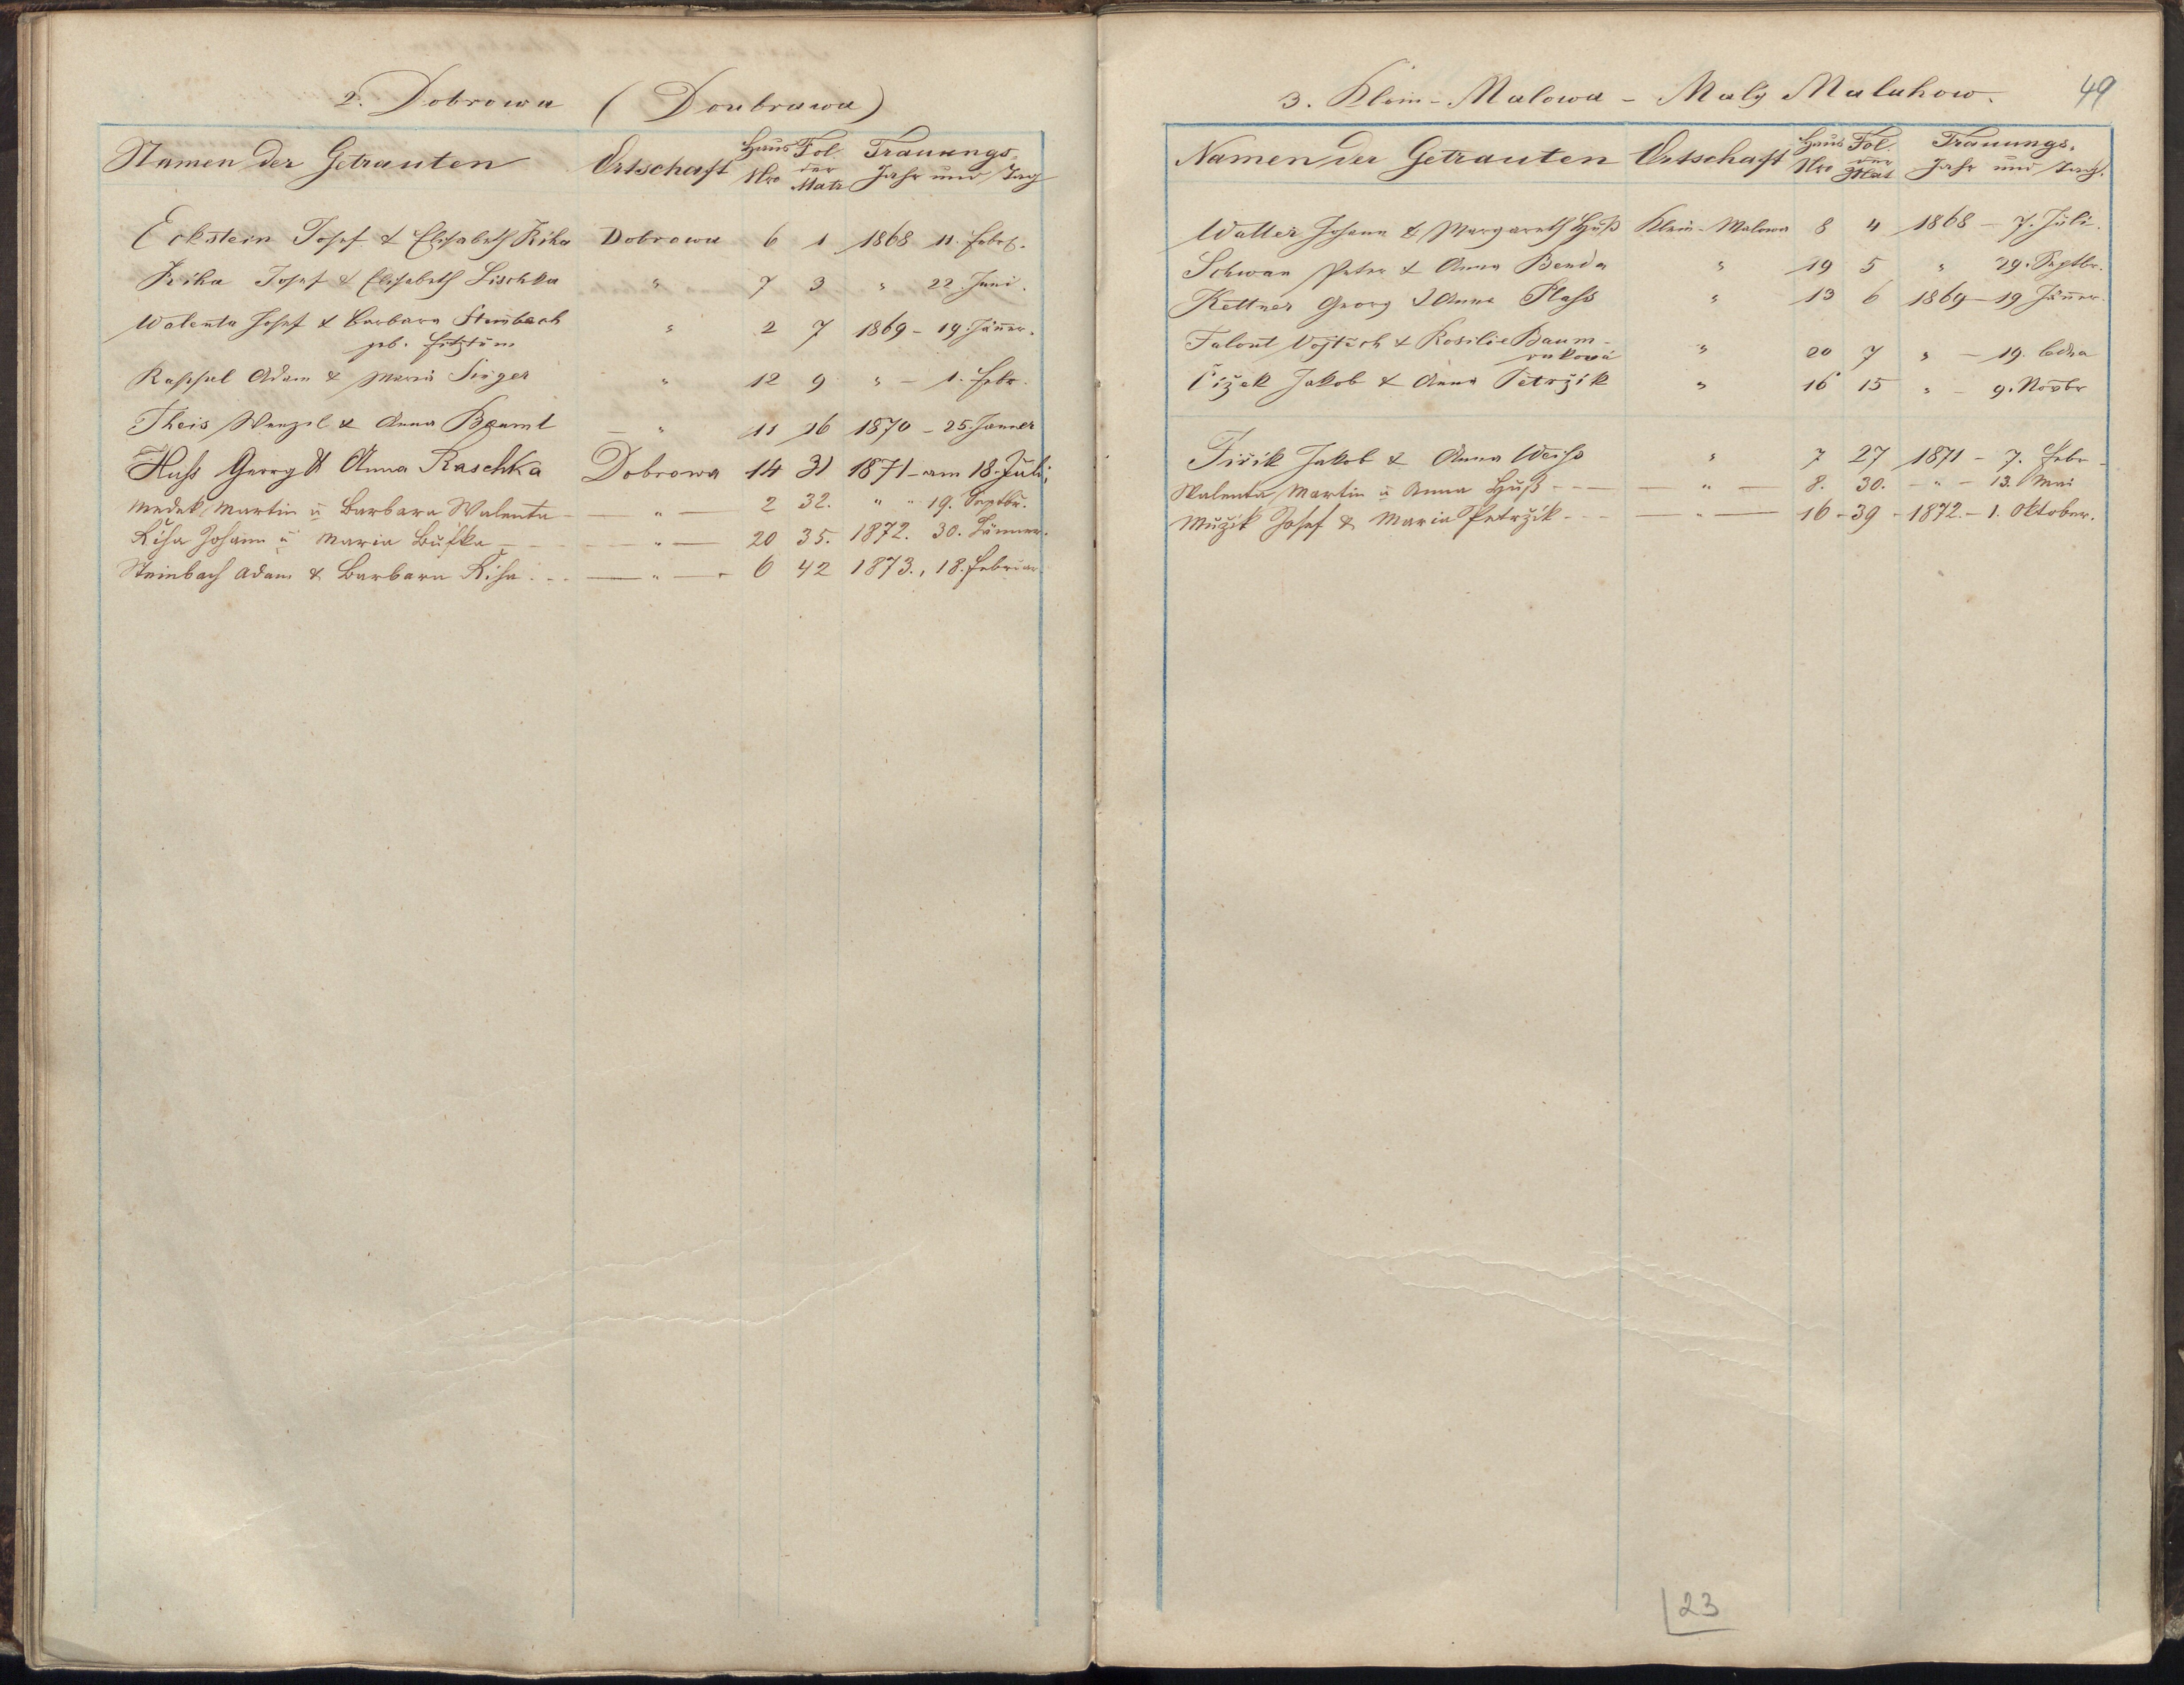 2. Dobrowa (Doubrawa)
Namen der Getrauten Ortschaft Haus Nro Fol. der Matr Trauungs- Jahr und Tag
Eckstein Josef & Elisabeth Kiha Dobrowa 6 1 1868 11. Febr.
Kiha Josef & Elisabeth Lischka " 7 3 " 22. Juni.
Walenta Josef & Barbara Steinbach " 2 7 1869 - 19. Jänner.
geb. Fitztum
Rappel Adam & Maria Singer " 12 9 " - 1. Febr.
Theis Wenzel & Anna Beaml — " 11 16 1870 - 25. Janner
Huss Georg & Anna Raschka Dobrowa 14 31 1871 - am 18. Juli
Medek Martin u Barbara Walenta — " — 2 32. " " 19. Septbr.
Kiha Johann u Maria — " — 20 35. 1872. 30. Jänner.
Steinbach Adam & Barbara Kiha — " — 6 42 1873., 18. Februar
3. Klein-Malowa - Malý Malahow. 49
Namen der Getrauten Ortschaft Haus Nro Fol. der Mat Trauungs- Jahr und Tag.
Walter Johann & Margareth Huß Klein-Malowa 8 4 1868 - 7. Juli.
Schwan Peter & Anna Benda " 19 5 " 29. Septbr.
Kettner Georg & Anna Flass " 13 6 1869 - 19 Jänner.
Falout Vojtěch & Rosilie Baum- " 20 7 " - 19.
ruková
Čížek Jakob & Anna Petržik " 16 15 " - 9. Novbr
Jiřík Jakob & Anna Weiss " 7 27 1871 - 7. Febr -
Walenta Martin u Anna Huß - - — " — 8. 30. - " - 13. Mai
Mužík Josef & Maria Petržik - - — " — 16 - 39 - 1872. - 1. Oktober.
23